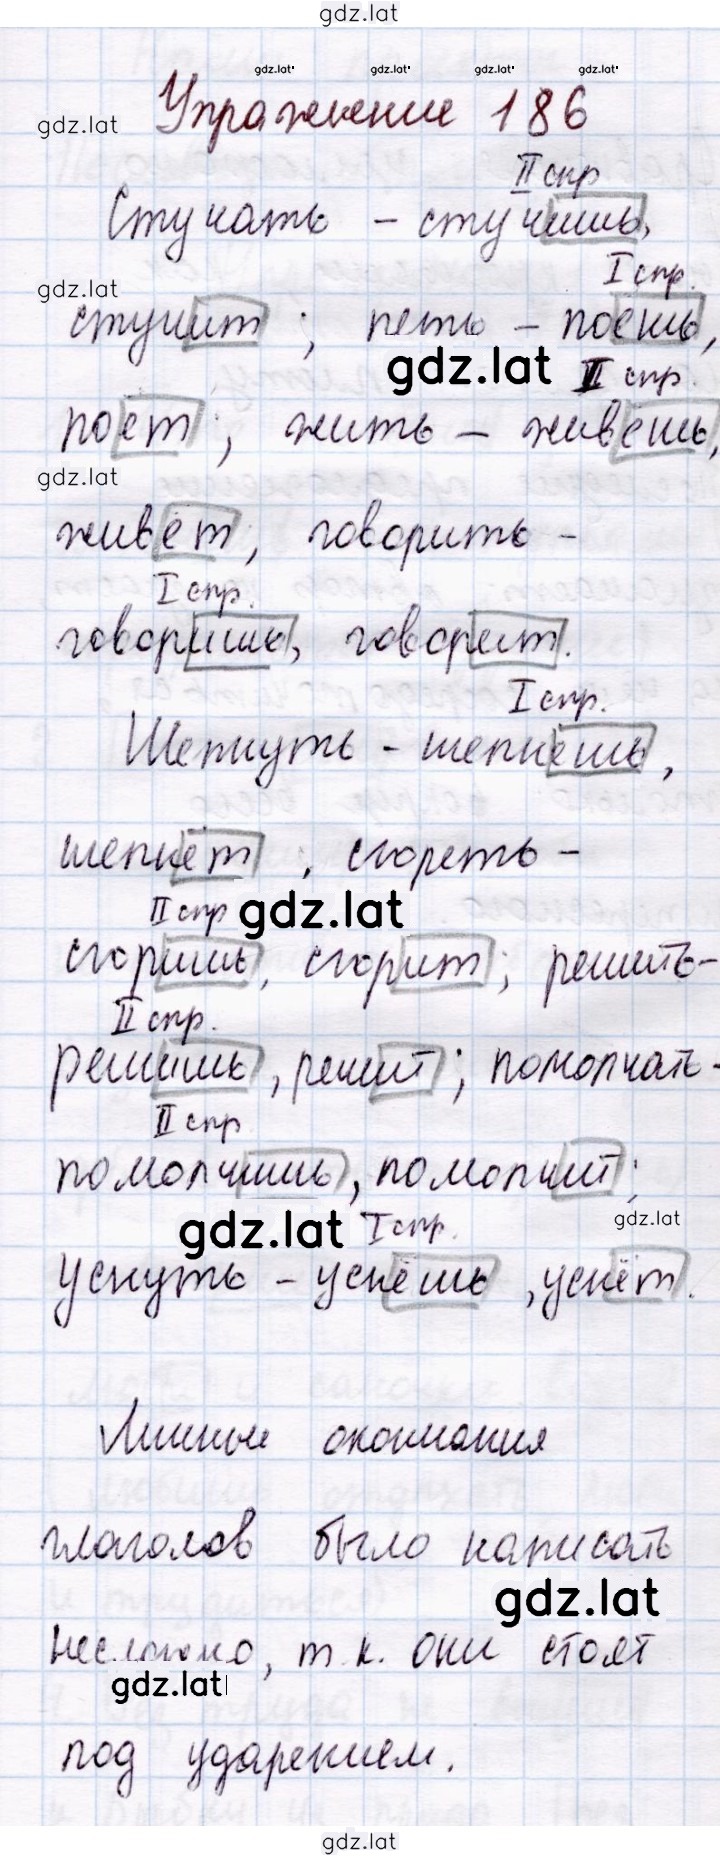 gdz.lat
gdz.lat gdz.lat gdz.lat gdz.lat
gdz.lat
Упражнение 186
II спр
Стучать - стучишь,
I спр.
gdz.lat
стучит; петь - поёшь,
gdz.lat
II спр.
поёт; жить - живёшь,
gdz.lat
живёт, говорить -
I спр.
говоришь, говорит.
I спр.
Шепнуть - шепнёшь,
шепнёт, сгореть -
II спр
gdz.lat
сгоришь, сгорит; решить-
II спр.
решишь, решит; помолчать-
II спр
помолчишь, помолчит;
gdz.lat
I спр.
gdz.lat
уснуть - уснёшь, уснёт.
Личные окончания
глаголов было написать
gdz.lat
несложно, т.к. они стоят
gdz.lat
под ударением.
gdz.lat